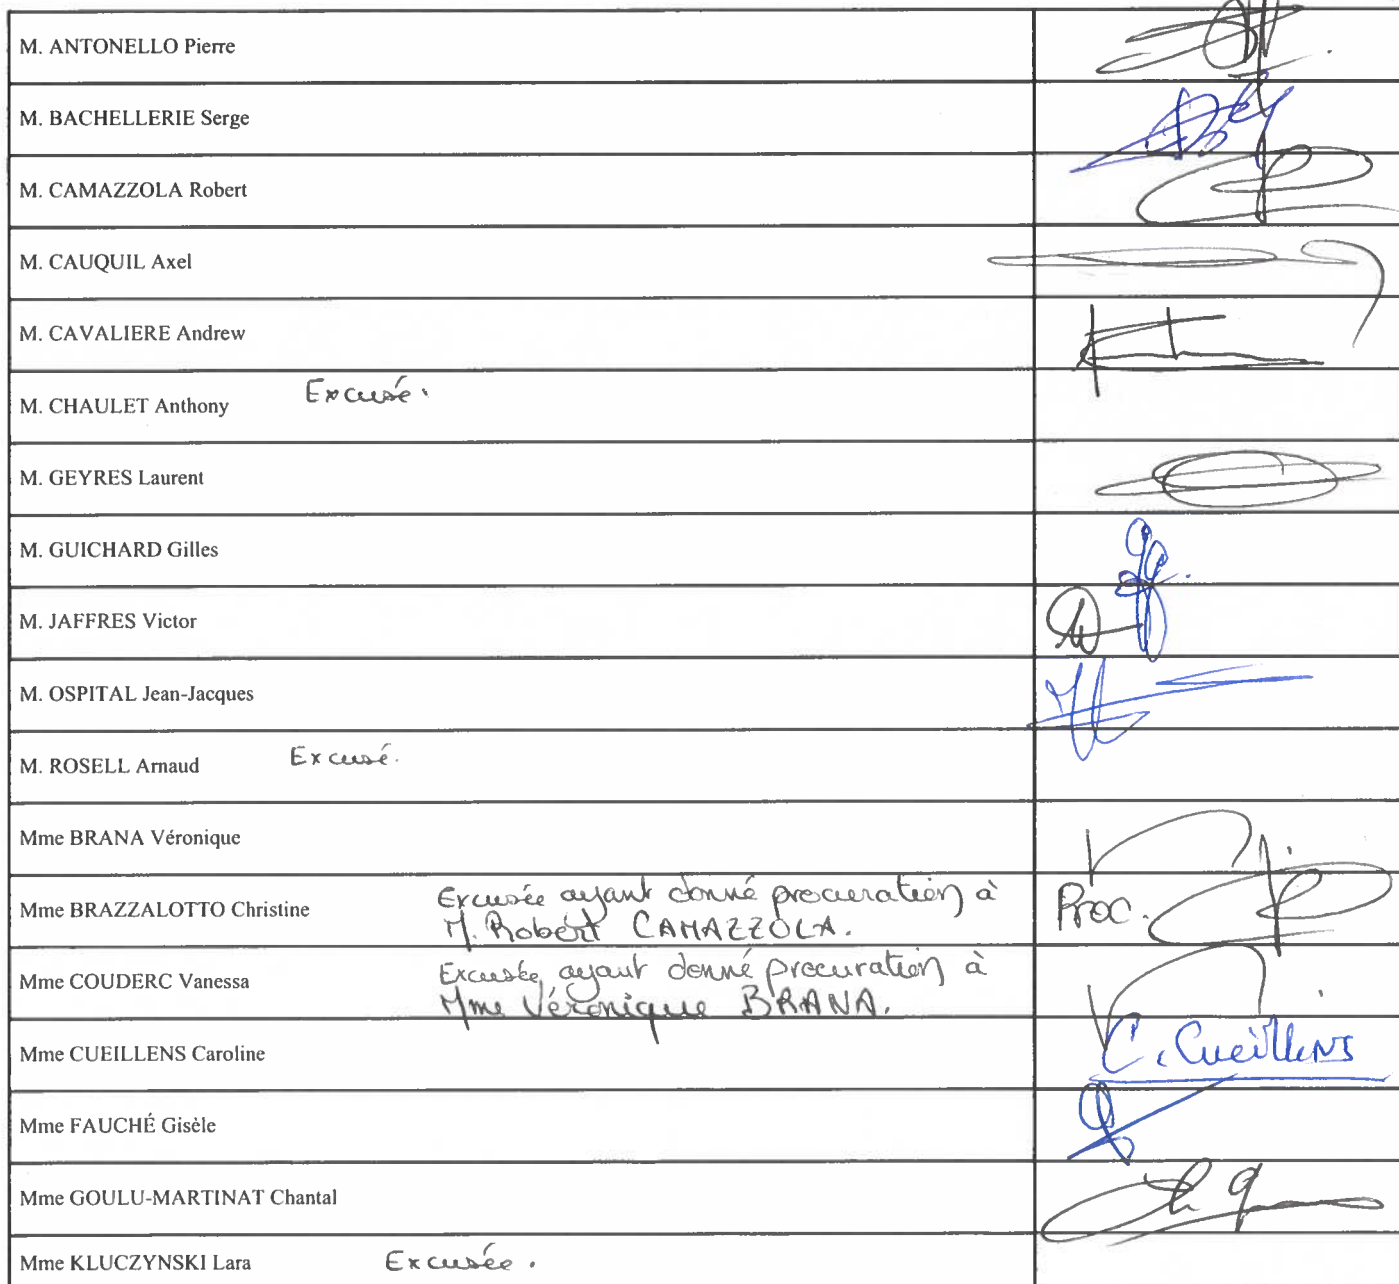 M. ANTONELLO Pierre
M. BACHELLERIE Serge
M. CAMAZZOLA Robert
M. CAUQUIL Axel
M. CAVALIERE Andrew
M. CHAULET Anthony Excusé.
M. GEYRES Laurent
M. GUICHARD Gilles
M. JAFFRES Victor
M. OSPITAL Jean-Jacques
M. ROSELL Arnaud Excusé.
Mme BRANA Véronique
Mme BRAZZALOTTO Christine Excusée ayant donné procuration à
M. Robert CAMAZZOLA.
Proc.
Mme COUDERC Vanessa Excusée, ayant donné procuration à
Mme Véronique BRANA.
Mme CUEILLENS Caroline C. Cueillens
Mme FAUCHÉ Gisèle
Mme GOULU-MARTINAT Chantal
Mme KLUCZYNSKI Lara Excusée.